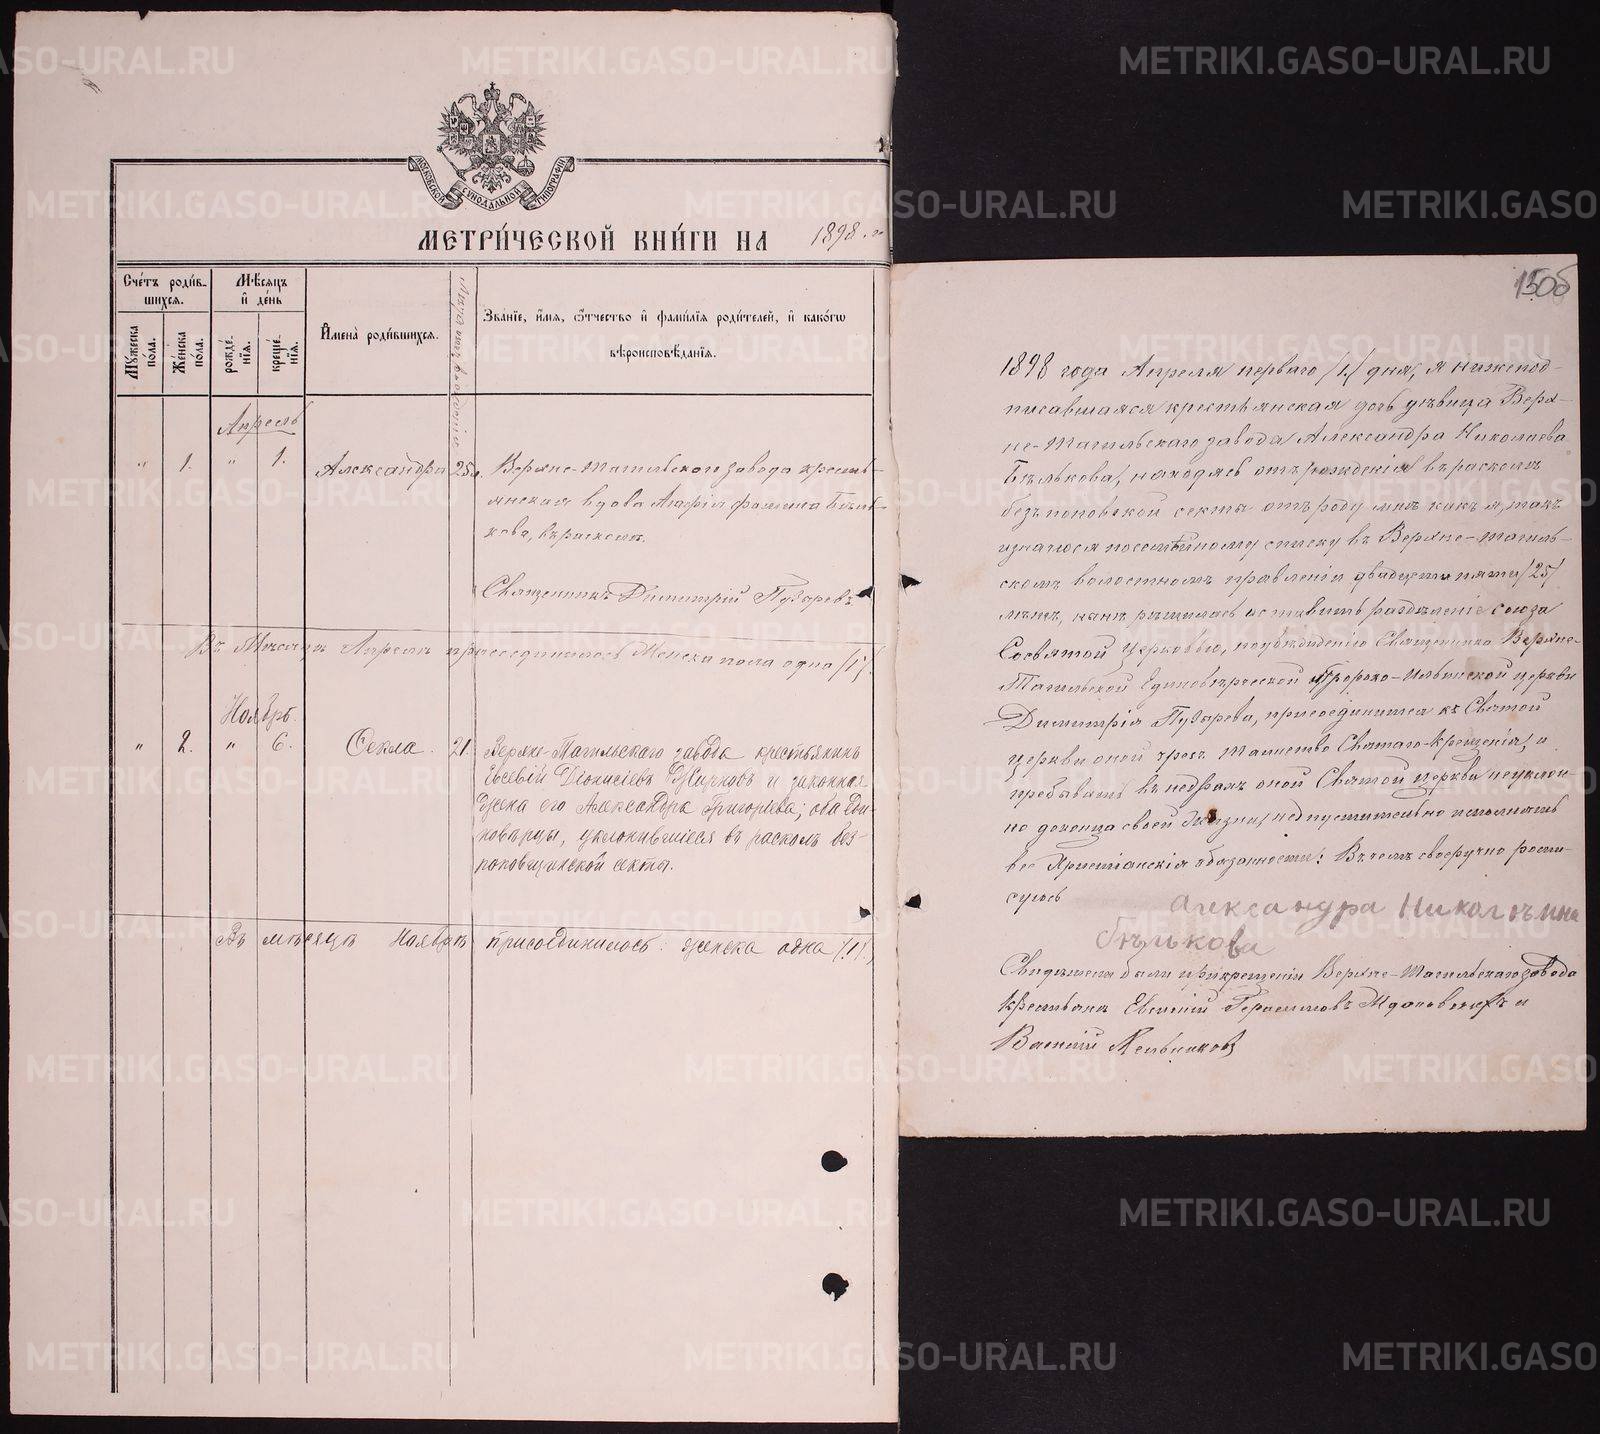 МОСКОВСКОЙ СѴНОДАЛЬНОЙ ТИПОГРАФІИ
МЕТРИ́ЧЕСКОЙ КНИ́ГИ НА 1898.
Сче́тъ роди́в-
шихся.
Мѣсяцъ
и҆ де́нь
Мꙋжеска
по́ла.
Же́нска
по́ла.
рожде́-
нїѧ.
креще́-
нїѧ.
И҆мена̀ роди́вшихся.
Лѣта
Зва́нїе, и҆́мѧ, ѻ҆́тчество и҆ фами́лїѧ роди́телей, и҆ како́гѡ
вѣроисповѣ́данїѧ.
Апрель
" 1. " 1. Александра 25 л. Верхне-Тагильского завода кресть-
янская вдова Фомина Бѣль-
кова, въ расколѣ.
Священникъ Димитрій Пузыревъ
Въ Мѣсяцѣ Апрелѣ присоединилось Женска пола одна /1/.
Ноябрь.
" 2. " 6. Ѳекла. 21. Верхне-Тагильскаго завода крестьянинъ
Евсевій Діонисіевъ и законная
жена его Александра Григорьева; оба еди-
новѣрцы, уклонившіеся въ расколъ без-
поповщинской секты.
Въ мѣсяцѣ Ноябрѣ присоединилось: женска одна (1).
150б
1898 года Апреля перваго /1/ дня, я нижепод-
писавшаяся крестьянская дочь дѣвица Верх-
не-Тагильскаго завода Александра Николаева
Бѣлькова, находясь отъ рожденія въ расколѣ
безпоповской секты отъ роду мнѣ какъ я, такъ
значюся по семѣйному списку въ Верхне-Тагиль-
скомъ волостномъ правленіи двадцати пяти /25/
лѣтъ, нынѣ рѣшилась оставить раздѣленіе союза
Со святой Церковью, по убѣжденію Священника Верхне-
Тагильской Единовѣрческой Пророко-Ильинской церкви
Димитрія Пузырева, присоединится къ Святой
Церкви оной чрезъ таинство Святаго крещенія, и
пребывать въ нѣдрахъ оной Святой Церкви неуклон-
но до конца своей жизни, исполнять
все Христіанскія обязанности: Въ чемъ своеручно роспи-
суюсь
Александра Николаъина
бѣлькова
Свидѣтели были при крещеніи Верхне-Тагильскаго завода
Крестьяне Евгеній Герасимовъ и
Василій
METRIKI.GASO-URAL.RU